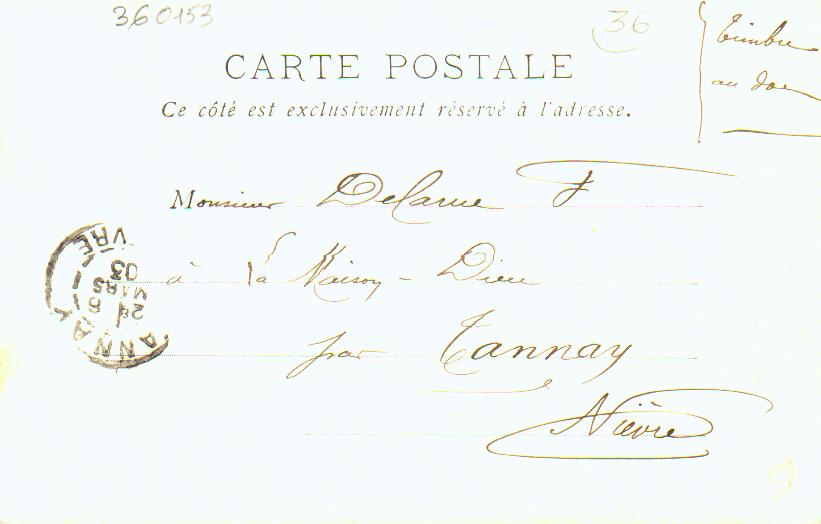 360153
36
Timbre
au dos
CARTE POSTALE
Ce côté est exclusivement réservé à l'adresse.
Monsieur Delarue F
à La Maison-Dieu
par Tannay
Nièvre
TANNAY
24
MARS
03